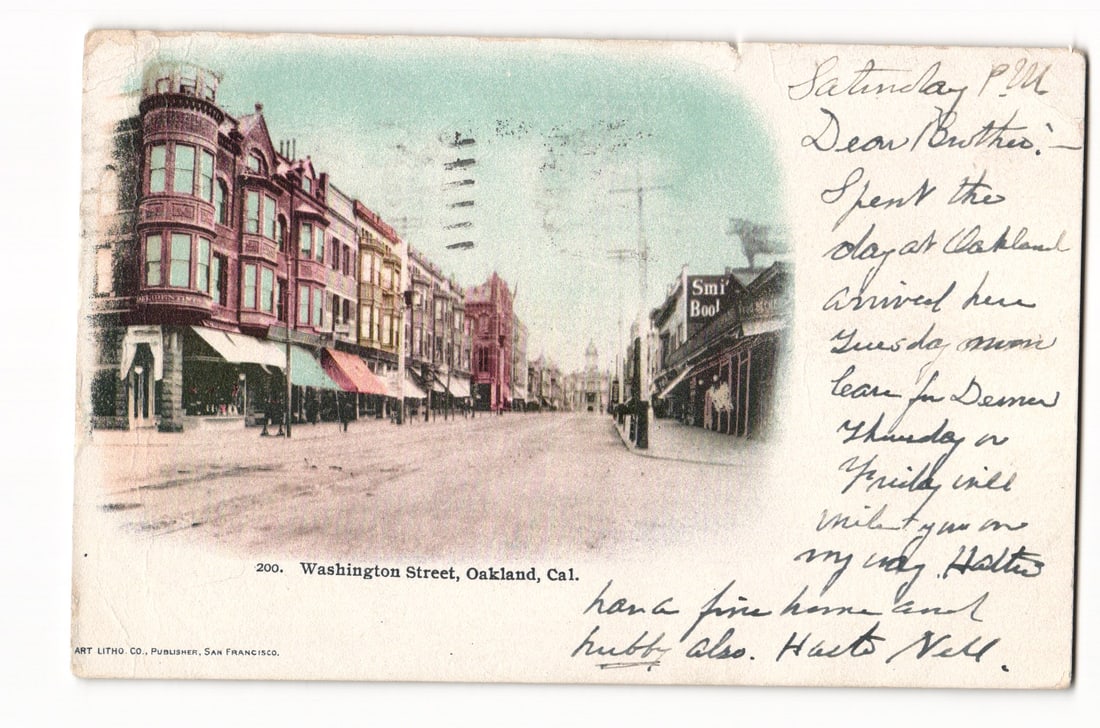 Saturday P.M
Dear Brother:—
Spent the
day at Oakland
arrived here
Tuesday morn
leave for Denver
Thursday or
Friday will
you on
my way. Hattie
have a fine home and
hubby also. Haste Nell.
Smi
Bool
200. Washington Street, Oakland, Cal.
ART LITHO. CO., PUBLISHER, SAN FRANCISCO.